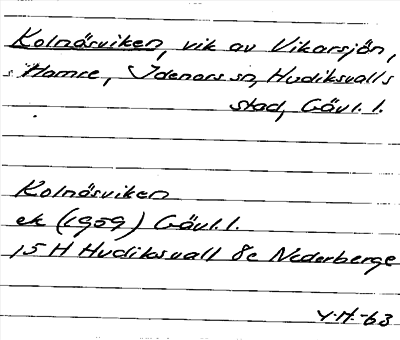 Kolnäsviken, vik av Vikarsjön,
s Hamre, Idenors sn, Hudiksvalls
stad, Gävl. l.
Kolnäsviken
ek (1959) Gävl. l.
15 H Hudiksvall 8c Nederberge
Y.H.-63